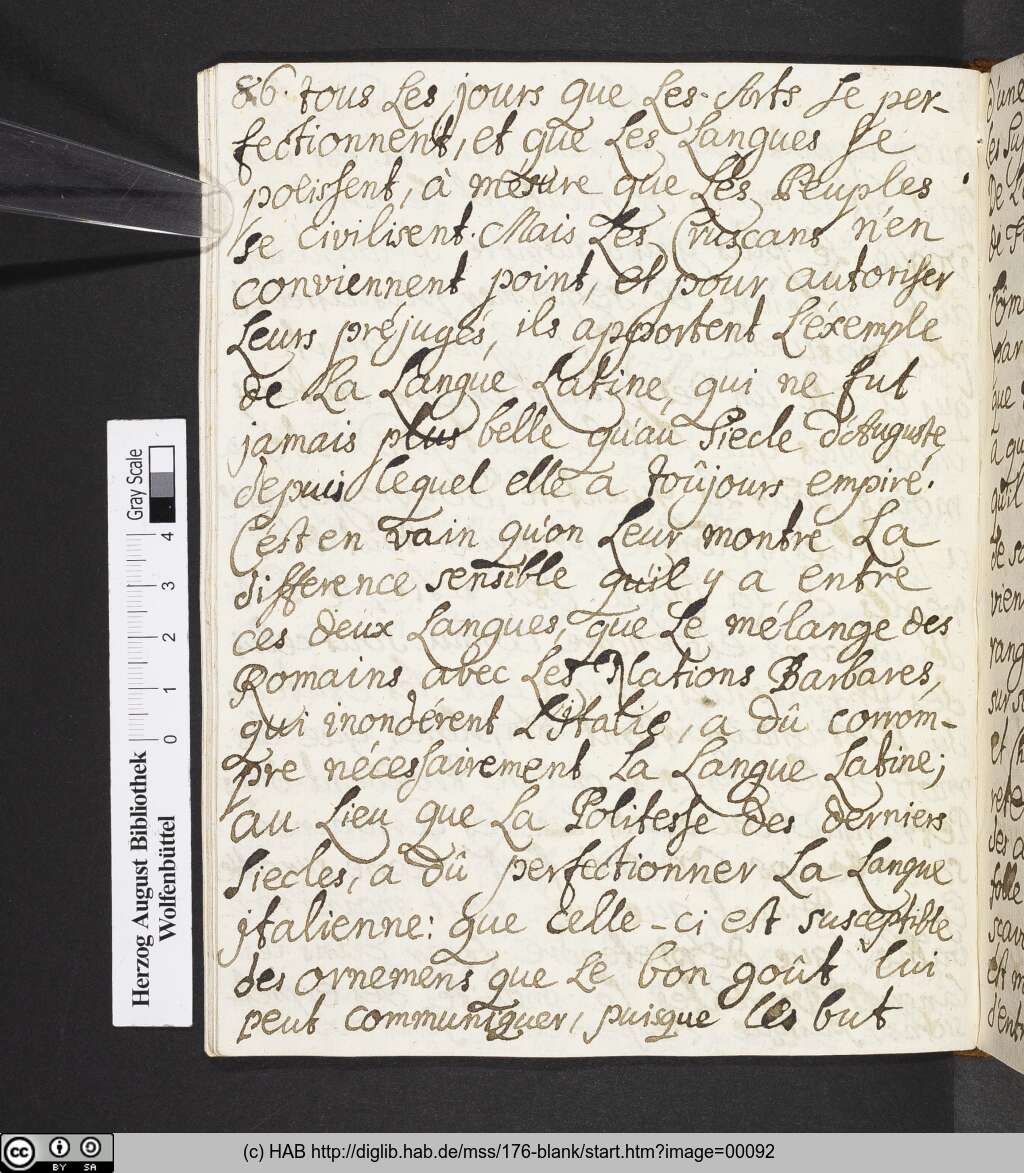 86. tous Les jours que Les Arts se per-
fectionnent, et que Les Langues se
polissent, à mesure que Les Peuples
se civilisent. Mais Les Cruscans n'en
conviennent point, et pour autoriser
Leurs préjugés, ils apportent L'éxemple
de La Langue Latine, qui ne fut
jamais plus belle qu'au Siecle d'Auguste,
depuis lequel elle a toûjours empiré.
C'est en vain qu'on Leur montre La
difference sensible qu'il y a entre
ces deux Langues, que Le mélange des
Romains avec Les Nations Barbares,
qui inondérent L'Italie, a dû corrom-
pre nécessairement La Langue Latine;
au Lieu que La Politesse des derniers
Siecles, a dû perfectionner La Langue
italienne: que celle-ci est susceptible
des ornemens que Le bon goût lui
peut communiquer, puisque les but
Gray Scale
4
3
2
1
0
Herzog August Bibliothek
Wolfenbüttel
cc BY SA
(c) HAB http://diglib.hab.de/mss/176-blank/start.htm?image=00092